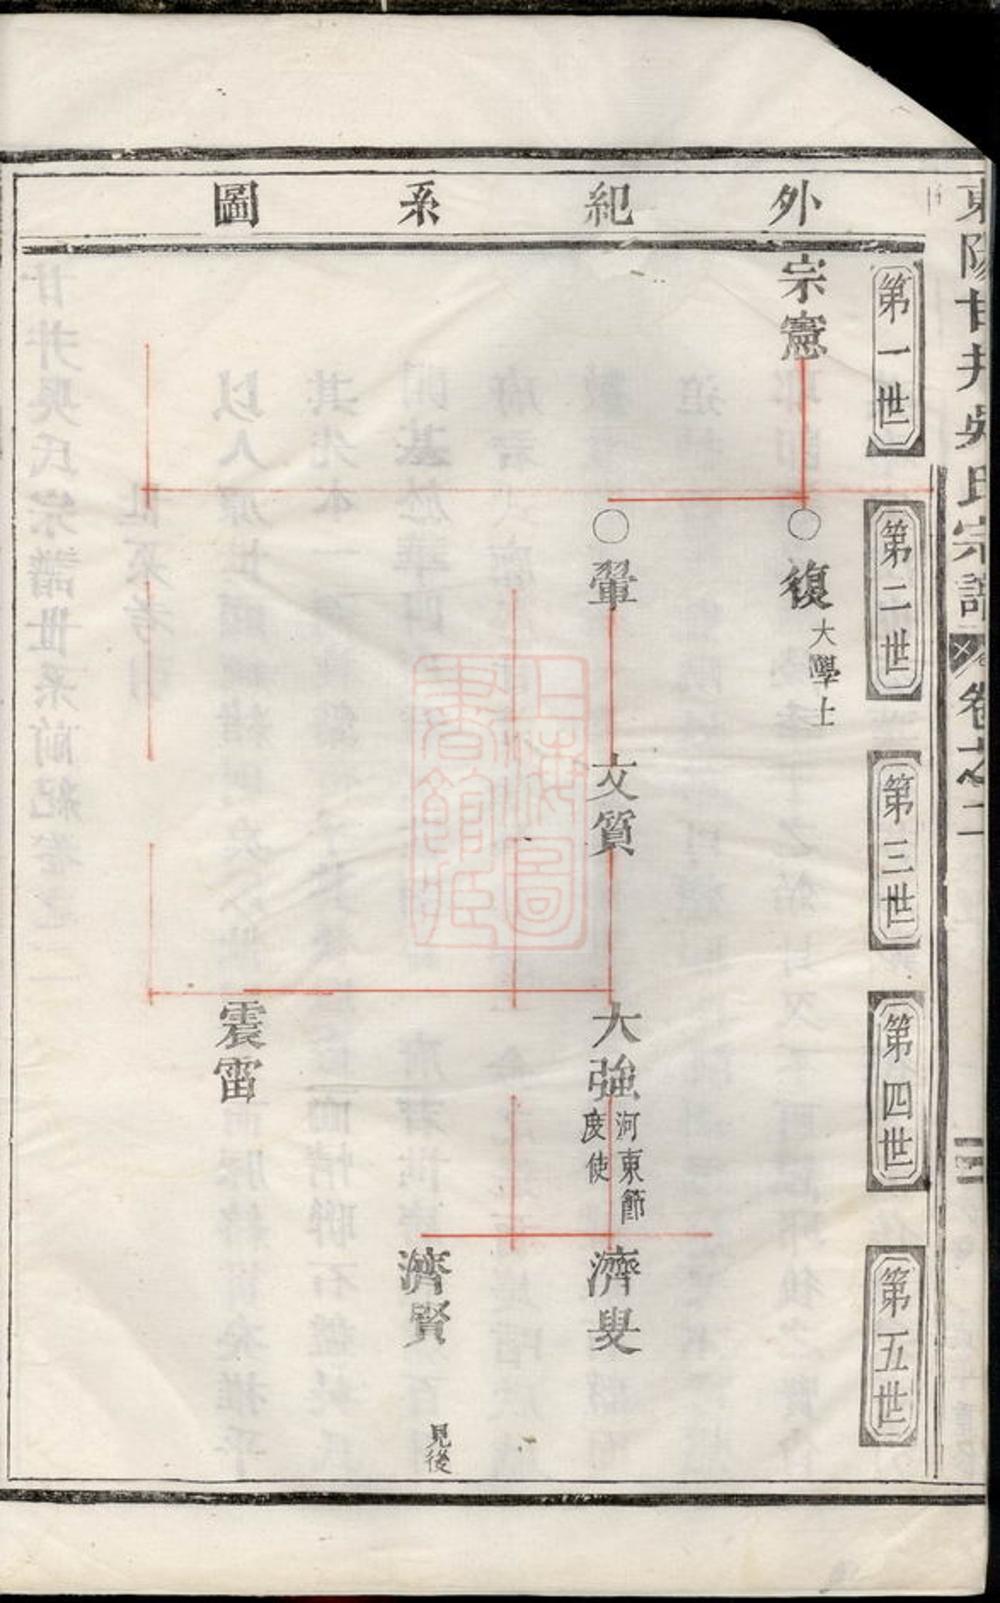 東陽甘井吳氏宗譜
卷之二
外紀系圖
第一世
第二世
第三世
第四世
第五世
宗憲
○復
大學上
○翬
文質
大強
河東節
度使
濟叟
濟賢
見後
震雷
上海圖
書館藏